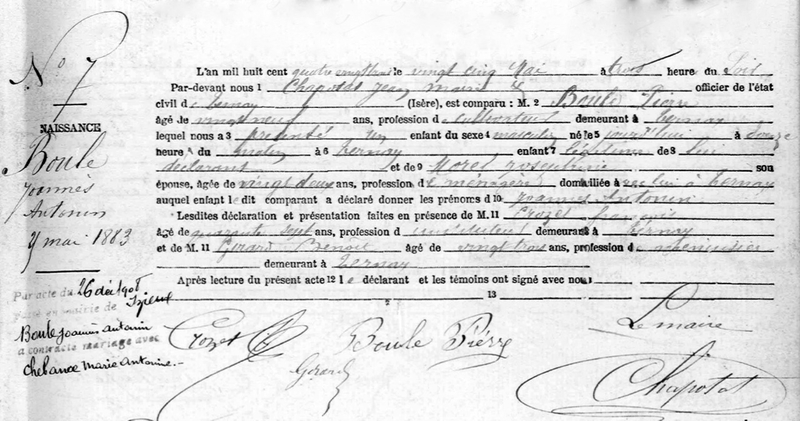 No 7
NAISSANCE
Boule
Joannès
Antonin
mai 1883
L'an mil huit cent quatre vingt trois le vingt cinq Mai à trois heure du Soir
Par-devant nous 1 Chapotat Jean maire officier de l'état
civil de Ternay (Isère), est comparu : M. 2 Boule Pierre
âgé de vingt neuf ans, profession de cultivateur demeurant à Ternay
lequel nous a 3 présenté un enfant du sexe 4 masculin né le 5 jourd'hui à onze
heure du matin à 6 Ternay enfant 7 légitime de 8 lui
déclarant et de 9 Morel son
épouse, âgée de vingt deux ans, profession de ménagère domiciliée avec lui à Ternay
auquel enfant le dit comparant a déclaré donner les prénoms d 10 Joannès Antonin
Lesdites déclaration et présentation faites en présence de M. 11 Crozet françois
âgé de quarante sept ans, profession d demeurant à Ternay
et de M. 11 Girard Benoit âgé de vingt trois ans, profession de menuisier
demeurant à Ternay
Après lecture du présent acte 12 le déclarant et les témoins ont signé avec nous
13
Par acte du 26 déc 1908
passé en mairie de Izieux
Boule Joannès Antonin
a contracté mariage avec
Chebance Marie Antoinie.
Crozet Boule Pierre Le maire
Girard Chapotat